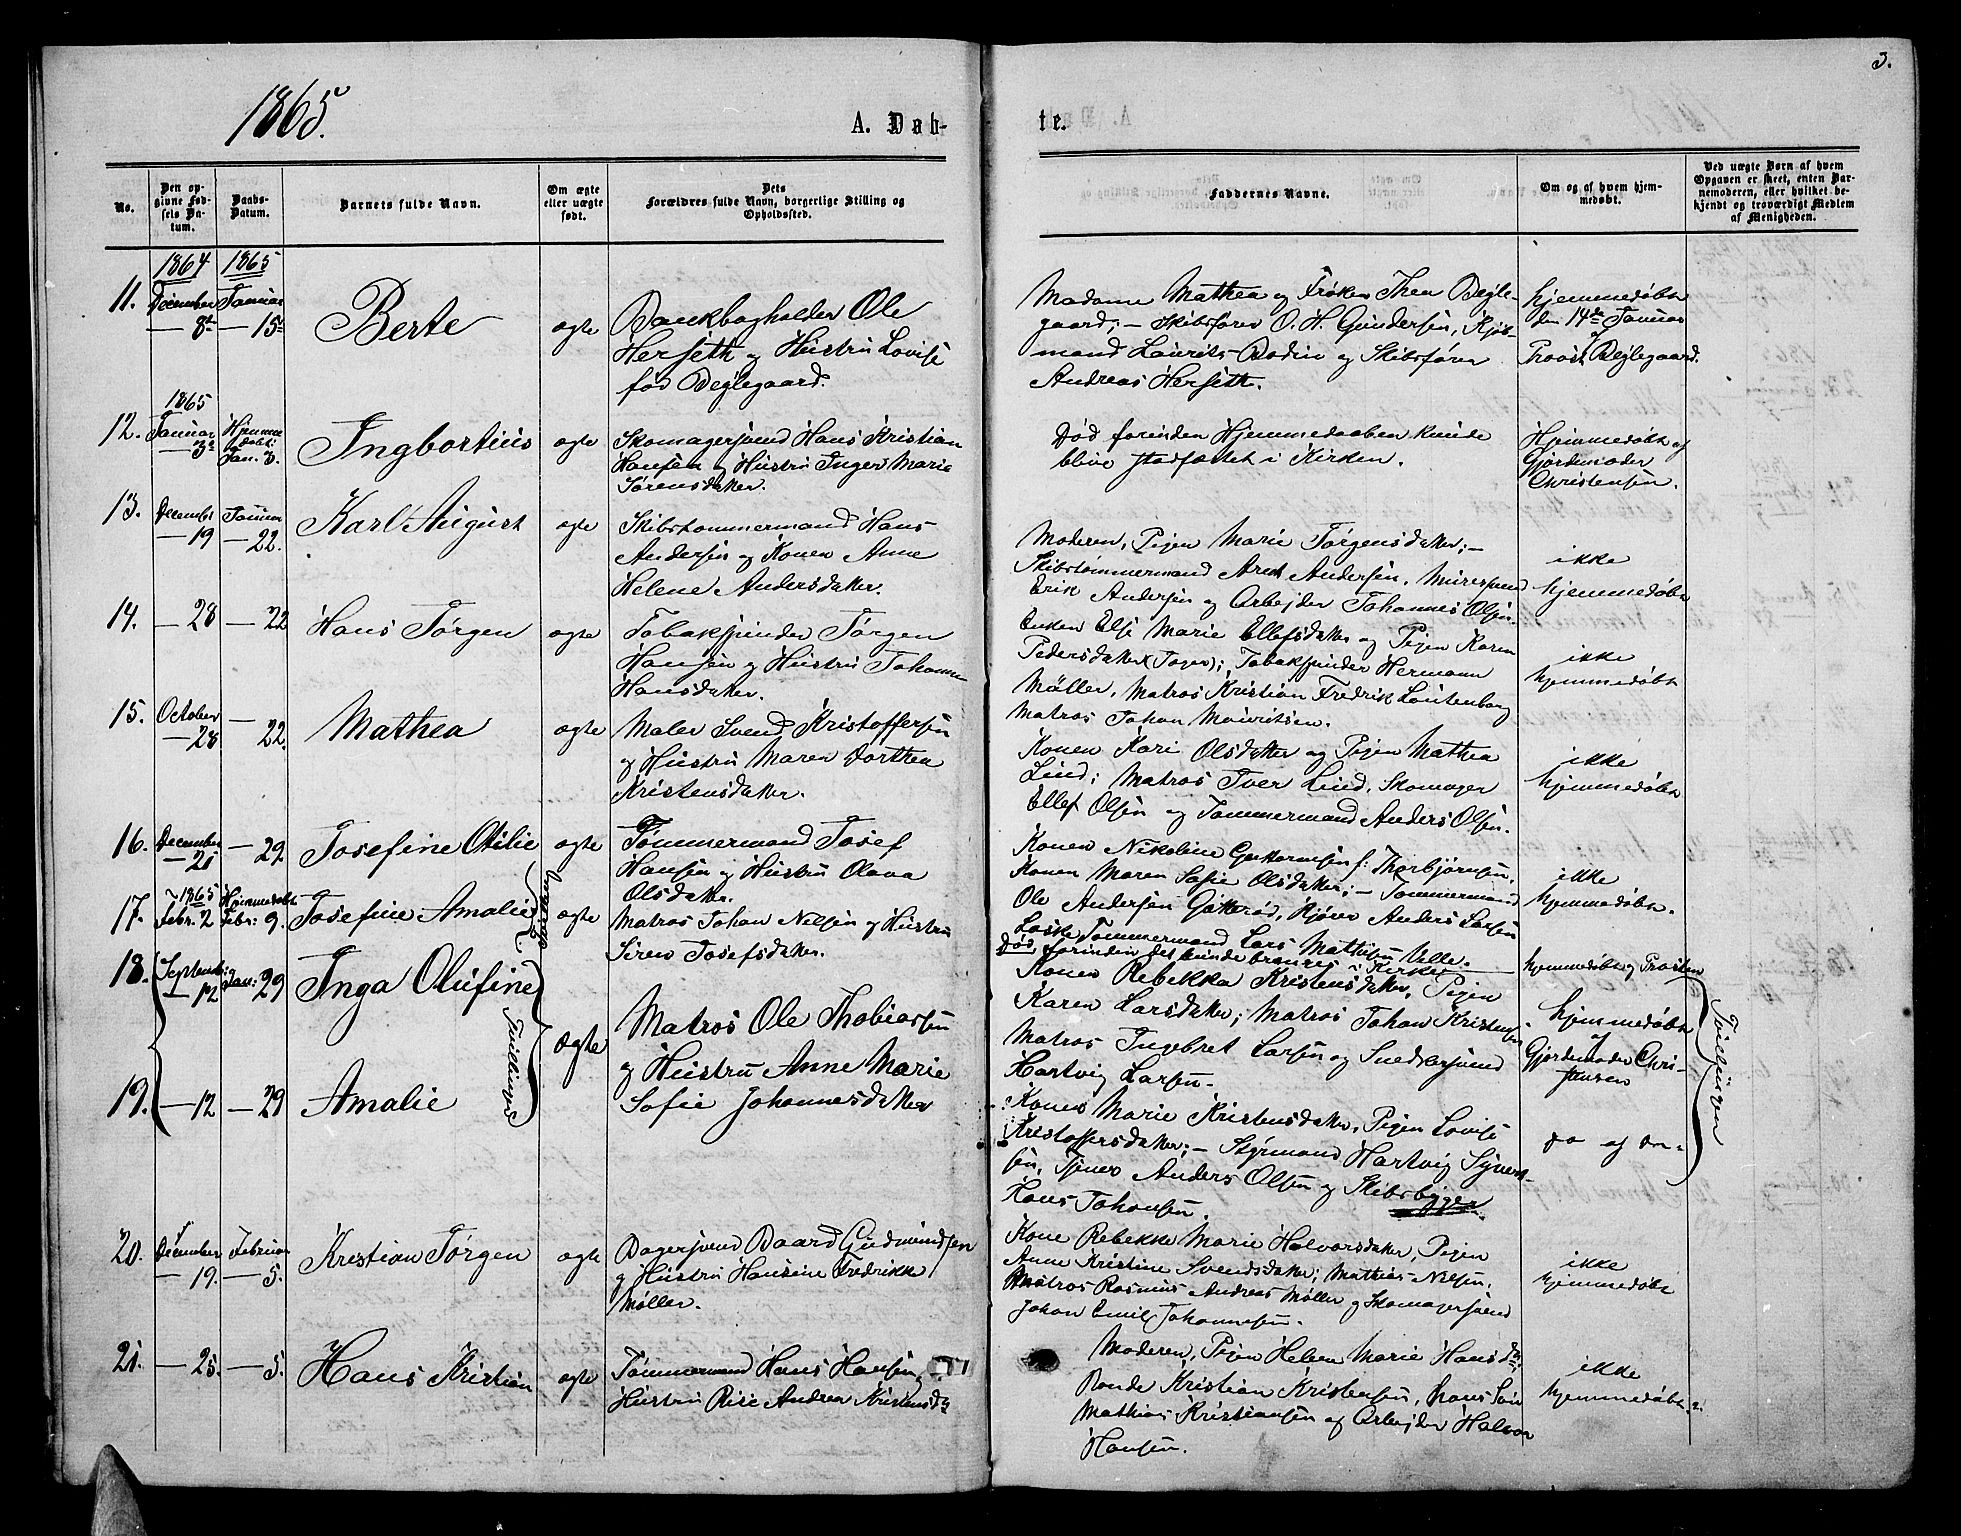 1865.
A. Døb-
te.
3.
No.
Den op-
givne Fød-
sels Da-
tum.
Daabs-
Datum.
Barnets fulde Navn.
Om ægte
eller uægte
født.
Dets
Forældres fulde Navn, borgerlige Stilling og
Opholdssted.
Faddernes Navne.
Om og af hvem hjem-
medøbt.
Ved uægte Børn af hvem
Opgaven er skeet, enten Bar-
nemoderen, eller hvilket be-
kjendt og troværdigt Medlem
af Menigheden.
1864 1865
11. December Januar
— 8de — 15de
Berte
ægte
Bankbogholder Ole
Herseth og Hustru Lovise
fød Deglegaard.
Madame Mathea og Frøken Thea Degle-
gaard; — Skibsfører O. H. Gundersen, Kjøb-
mand Laurits Bodin og Skibsfører
Andreas Herseth.
hjemmedøbt
den 14de Januar
Provst Deglegaard.
1865
12. Januar
— 3de
Hjemme
døbt:
Jan. 3.
Ingbortius
ægte
Skomagersvend Hans Kristian
Hansen og Hustru Inger Marie
Sørensdatter.
Død forinden Hjemmedaaben kunde
blive stadfæstet i Kirken.
Hjemmedøbt af
Gjordemoder
Christensen.
13. December Januar
— 19 — 22.
Karl August
ægte
Skibstømmermand Hans
Andersen og Konen Anne
Helene Andersdatter.
Moderen, Pigen Marie Jørgensdatter; —
Skibstømmermand Arent Andersen, Murersvend
Erik Andersen og Arbejder Johannes Olsen.
ikke
hjemmedøbt
14. — 28 — 22
Hans Jørgen
ægte
Tobakspinder Jørgen
Hansen og Hustru Johanne
Hansdatter.
Enken Else Marie Ellefsdatter og Pigen Karen
Pedersdatter; Tobakspinder Hermann
Møller, Matros Kristian Fredrik Loutenborg
Matros Johan Mouritsen.
ikke
hjemmedøbt
15. October —
— 28 22.
Mathea
ægte
Maler Svend Kristoffersen
og Hustru Maren Dorthea
Kristensdatter.
Konen Kari Olsdatter og Pigen Mathea
Lind; Matros Iver Lind, Skomager
Ellef Olsen og Tømmermand Anders Olsen.
ikke
hjemmedøbt
16. December
— 21 — 29
Josefine Otilie
ægte
Tømmermand Josef
Hansen og Hustru Olava
Olsdatter.
Konen Nikoline Guttormsen f. Thorbjørnsen,
Konen Maren Sofie Olsdatter; — Tømmermand
Ole Andersen Gitterød, Kjører Anders Larsen
Loske, Tømmermand Lars Mathisen Ulle.
ikke
hjemmedøbt.
1865
17. Febr. 2
Hjemmedøbt
Febr: 9.
Josefine Amalie
ægte
Matros Johan Nilsen og Hustru
Siren Josefsdatter.
Død, forinden det kunde bringes i Kirken
hjemmedøbt af Provsten
18. September
— 12 Jan: 29
Inga Olufine
Tvillinger
ægte
Matros Ole Thobiassen
og Hustru Anne Marie
Sofie Johannesdatter
Konen Rebekka Kristensdatter, Pigen
Karen Larsdatter; Matros Johan Kristensen
Matros Ingebret Larsen og Snedkersvend
Hartvig Larsen.
hjemmedøbt
af
Gjordemoder Chri-
stensen
Tvillinger
19. — 12 — 29
Amalie
Konen Marie Kristensdatter, Pigen Lovise
Kristoffersdatter; — Styrmand Hartvig Syvert-
sen, Tjener Anders Olsen og Skibsbygger
Hans Johansen.
do af do-
20. December Februar
— 19. — 5.
Kristian Jørgen
ægte
Bagersvend Baard Gudmundsen
og Hustru Hansine Fredrikke
Møller.
Kone Rebekke Marie Halvorsdatter, Pigen
Anne Kristine Svendsdatter; Mathias Nilsen,
Matros Rasmus Andreas Møller og Skomagersvend
Johan Emil Johannesen.
ikke
hjemmedøbt
21. — 25. — 5.
Hans Kristian
ægte
Tømmermand Hans Hansen
Hustru Risi Andrea Kristensdtr
Moderen, Pigen Helene Marie Hansdtr
Bonde Kristian Kristensen, hans Søn
Mathias Kristiansen og Arbejder Halvor
Hansen.
ikke
hjemmedøbt.